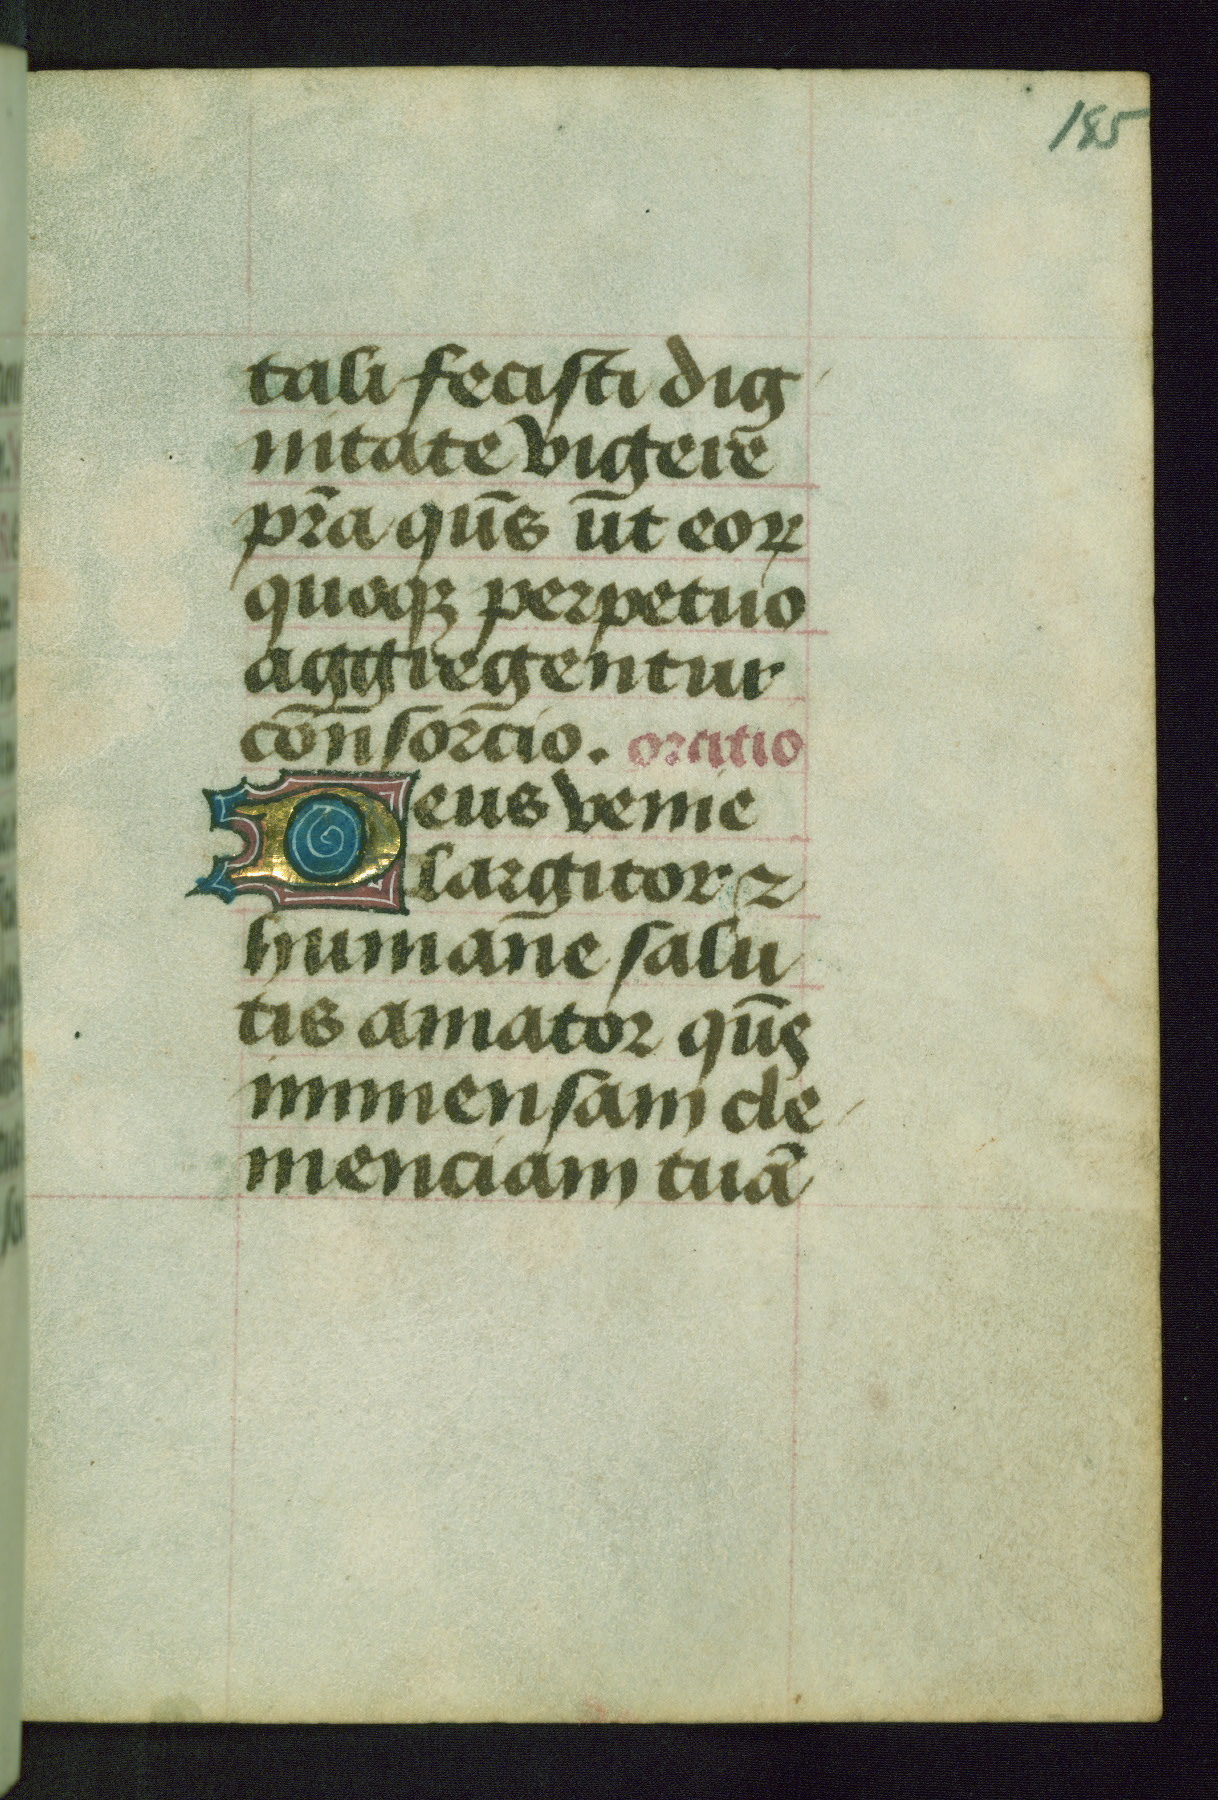 185
tali fecisti dig
nitate vigere
pr̄a qūs ūt eoꝝ
quoqꝫ perpetuo
aggregentur
con̄sorcio. oratio
Deus venie
largitor ⁊
humane salu
tis amator qūs
immensam cle
menciam tuā